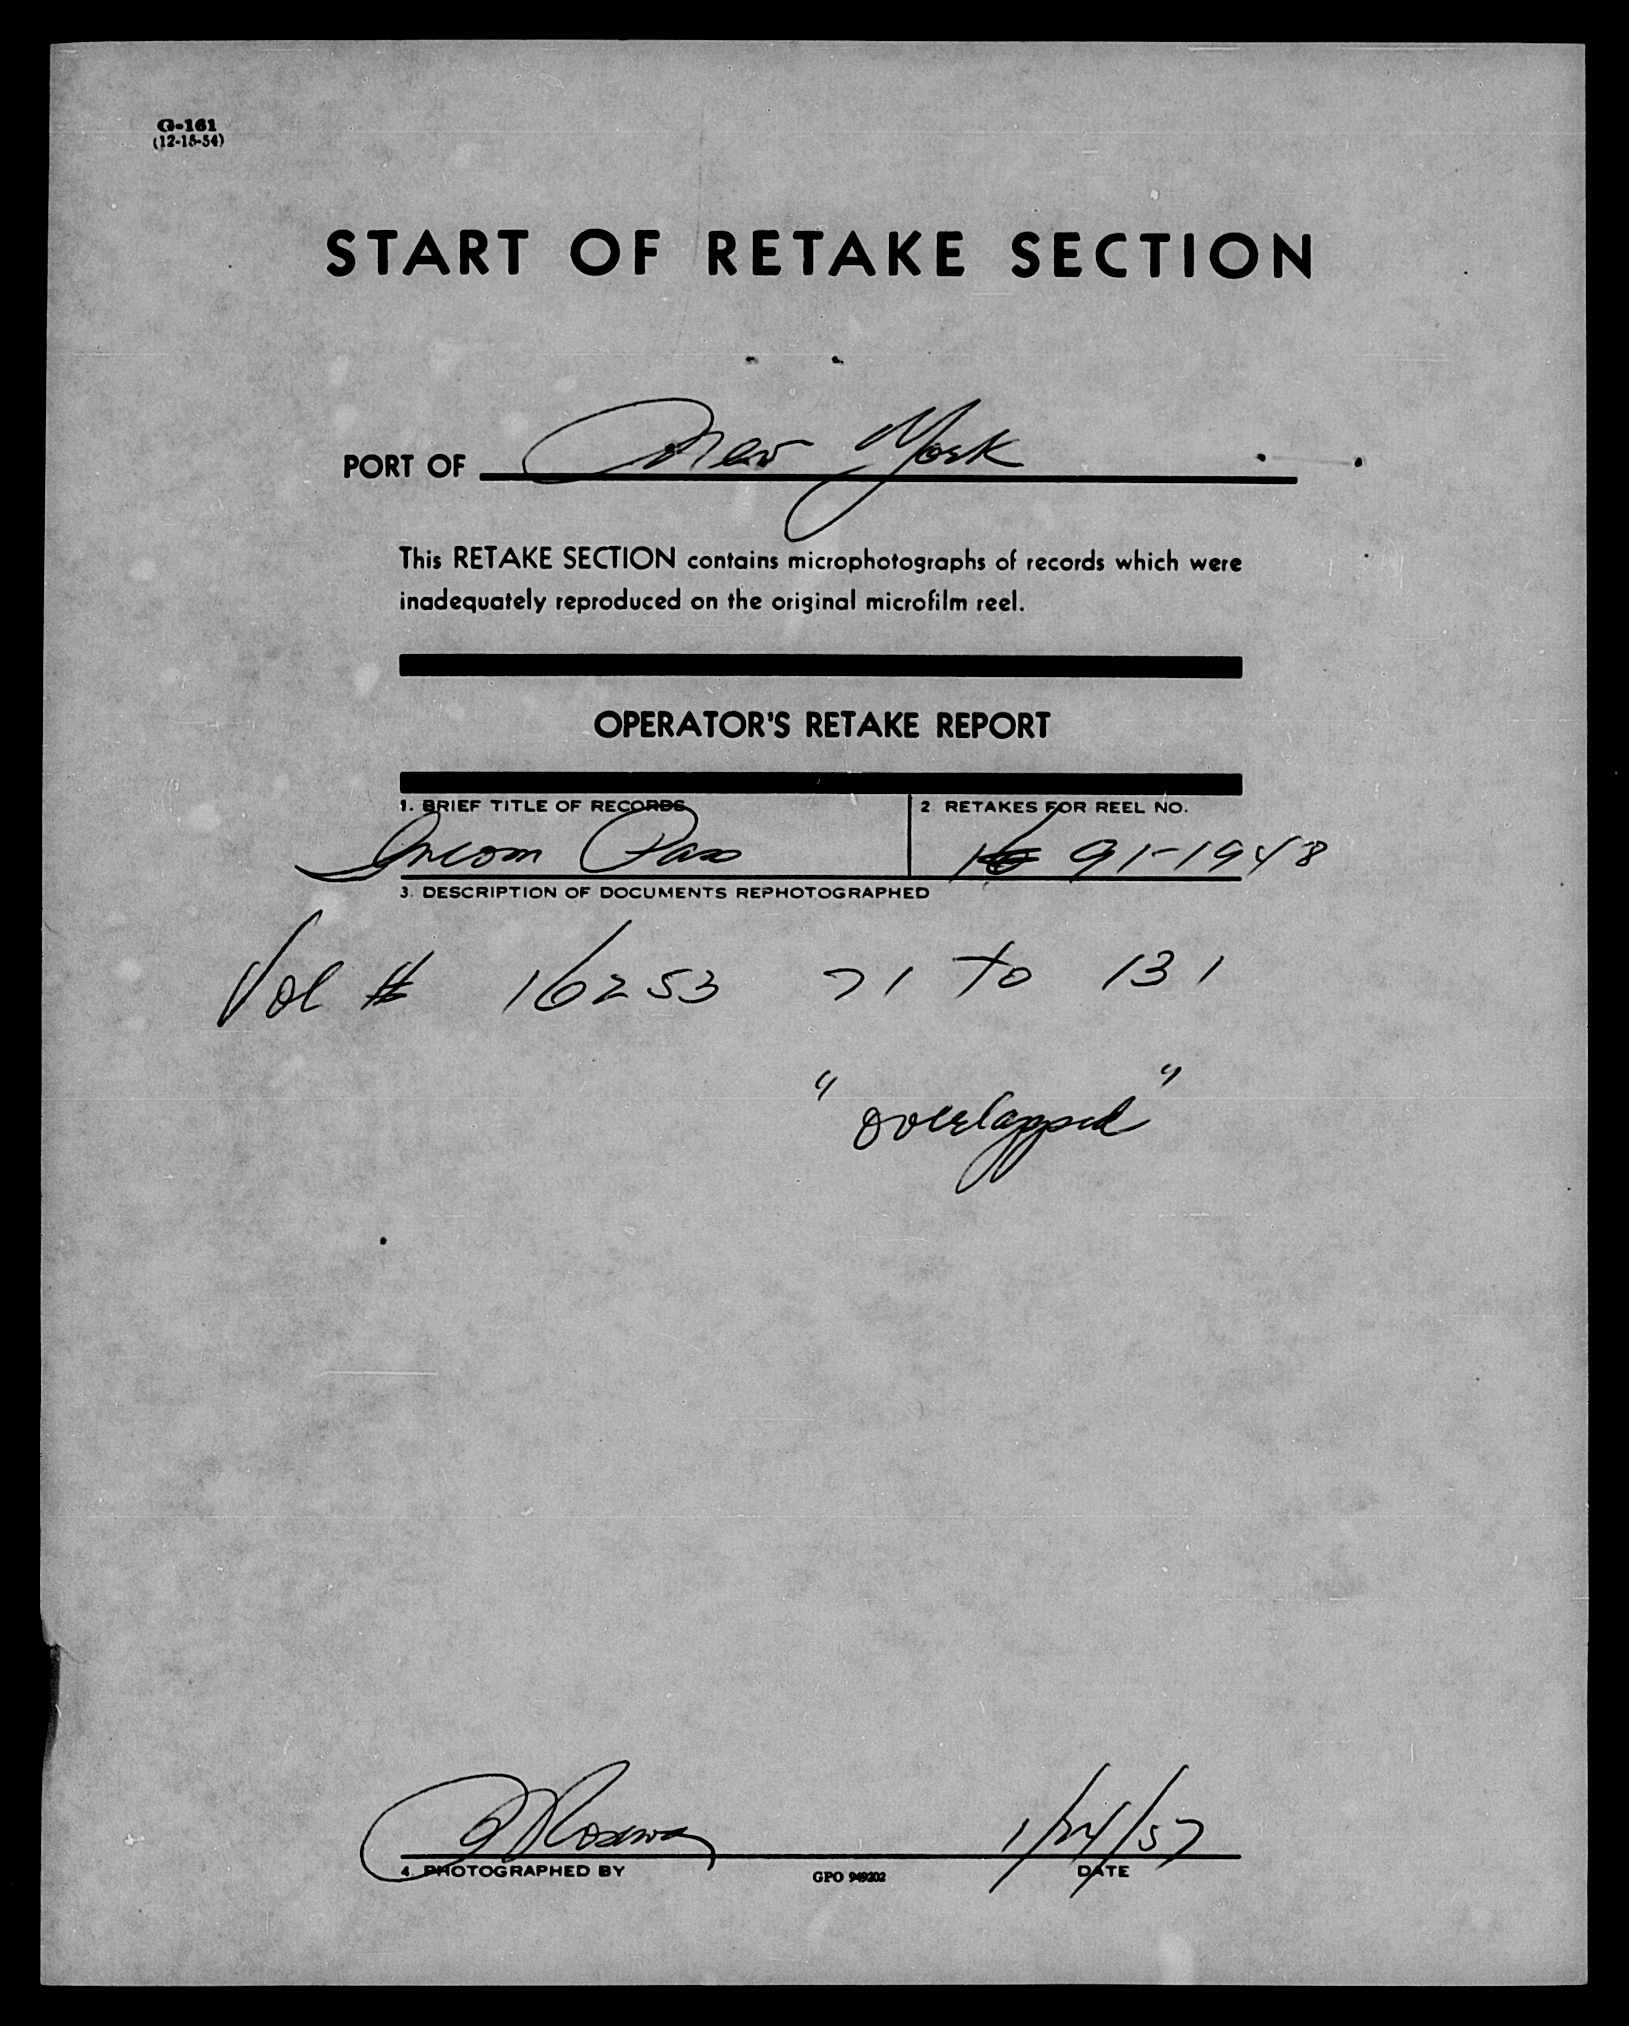 G-161
(12-15-54)
START OF RETAKE SECTION
PORT OF New York
This RETAKE SECTION contains microphotographs of records which were
inadequately reproduced on the original microfilm reel.
OPERATOR'S RETAKE REPORT
1. BRIEF TITLE OF RECORDS 2. RETAKES FOR REEL NO.
Incom Pass 91-1948
3. DESCRIPTION OF DOCUMENTS REPHOTOGRAPHED
Vol # 16253 71 to 131
"overlapped"
1/24/57
4. PHOTOGRAPHED BY GPO 949202 DATE